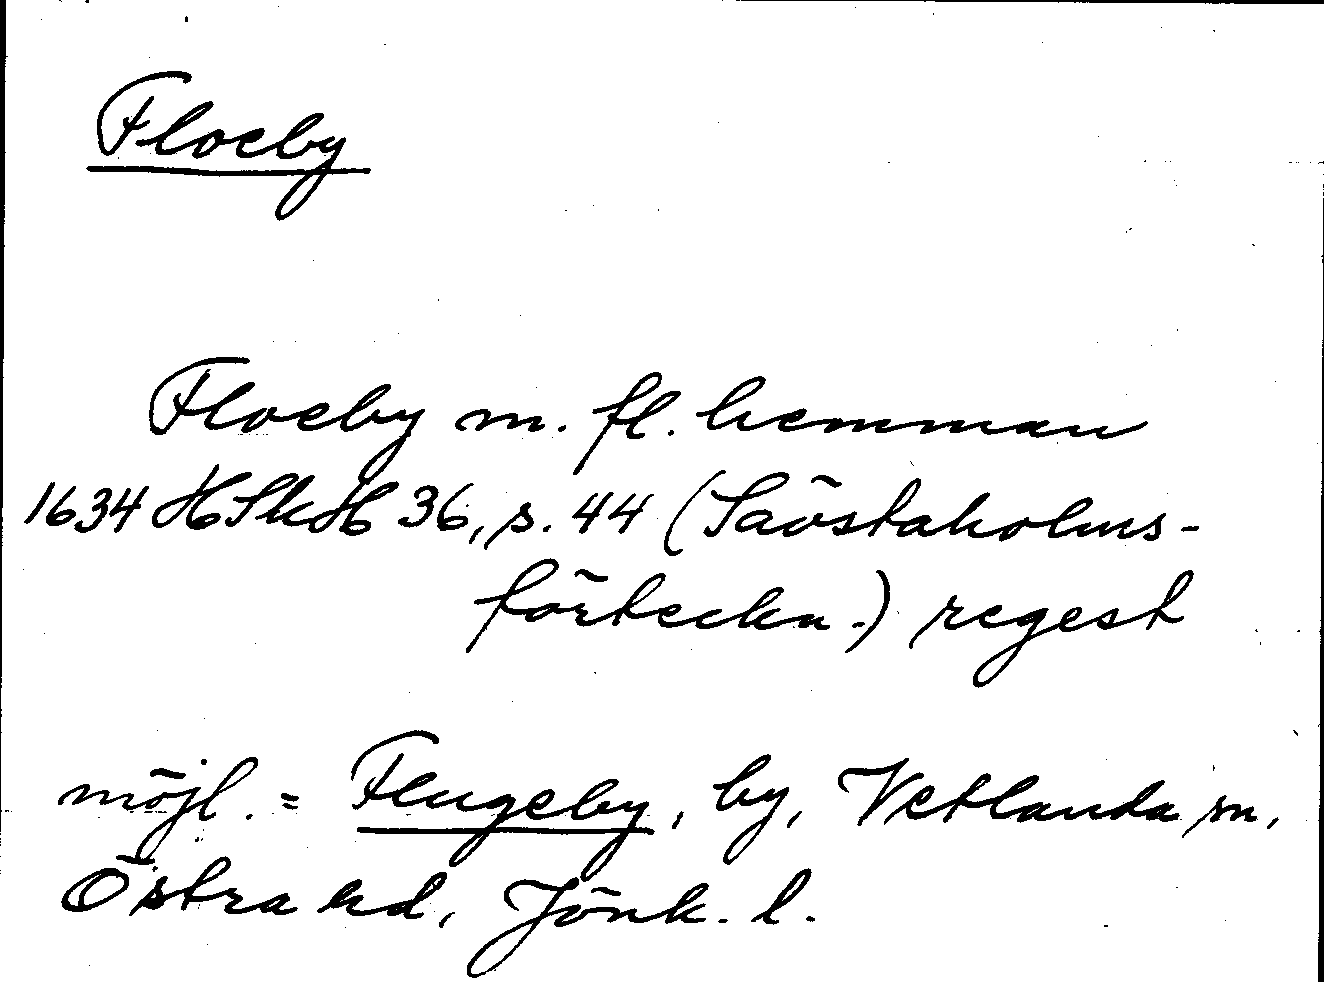 Floeby
Floeby m. fl. hemman
1634 HSkH 36, s. 44 (Säöstaholms-
förteckn.) regest
möjl. = Flugeby, by, Vetlanda sn,
Östra hd, Jönk. l.